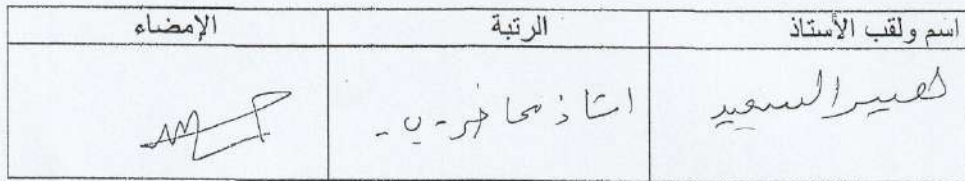 اسم ولقب الأستاذ الرتبة الإمضاء
لعبير السعيد استاذ محاضر - ب -